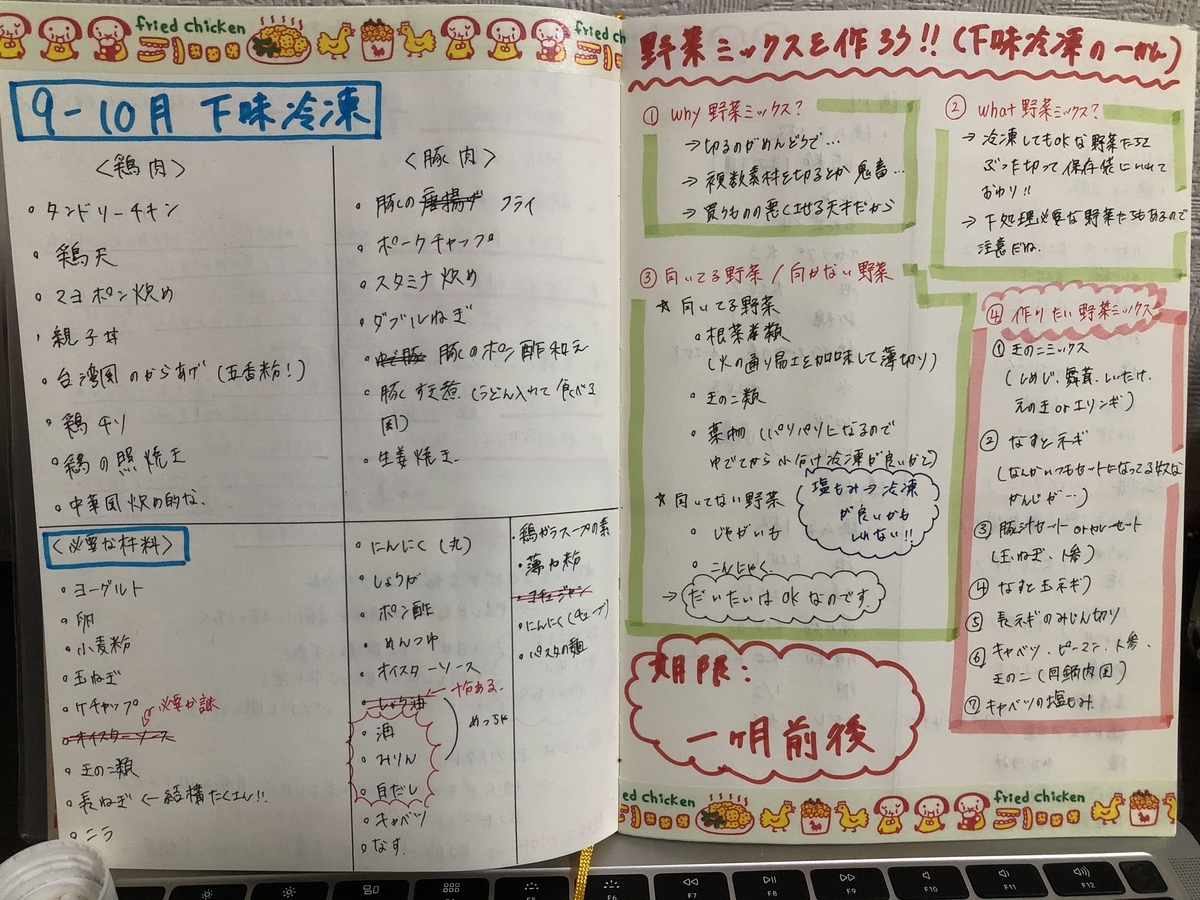 fried chicken
fried ch
9-10月 下味冷凍
<鶏肉>
・タンドリーチキン
・鶏天
・マヨポン炒め
・親子丼
・台湾風のからあげ (五香粉!)
・鶏チリ
・鶏の照焼き
・中華風炒め的な.
<豚肉>
・豚しの唐揚げ フライ
・ポークチャップ
・スタミナ炒め
・ダブルねぎ
・ゆで豚 豚しのポン酢和え
・豚しすき煮. (うどん入れて食べる
図)
・生姜焼き.
<必要な材料>
・ヨーグルト
・卵
・小麦粉
・玉ねぎ
・ケチャップ
必要か謎
・オイスターソース
・きのこ類
・長ねぎ ←結構たくさん!!
・ニラ
・にんにく (丸)
・しょうが
・ポン酢
・めんつゆ
・オイスターソース
・しょう油 ←十分ある.
・酒
・みりん
・白だし
めっちゃ
・キャベツ
・なす.
・鶏ガラスープの素
・薄力粉
・コチュジャン
・にんにく(チューブ)
・パスタの麺
野菜ミックスを作ろう!! (下味冷凍の一かん)
① Why 野菜ミックス?
→切るのがめんどうで…
→複数素材を切るとか鬼畜…
→買うもの悪くさせる天才だから
② What 野菜ミックス?
→冷凍してもOKな野菜たちを
ぶった切って保存袋にいれて
おわり!!
→下処理必要な野菜たちもあるので
注意だね.
③ 向いてる野菜 / 向かない野菜
☆ 向いてる野菜
・根菜類
(火の通り居士を加味して薄切り)
・きのこ類
・葉物 (パリパリになるので
ゆでてから小分け冷凍が良いかも)
塩もみ→冷凍
が良いかも
しれない!!
☆ 向いてない野菜
・じゃがいも
・こんにゃく
→だいたいはOKなのです.
④ 作りたい野菜ミックス
① きのこミックス
(しめじ, 舞茸, しいたけ,
えのき or エリンギ)
② なすとネギ
(なんかいつもセットになってる奴な
かんじが…)
③ 豚汁セート or カレーセット
(玉ねぎ、人参)
④ なすと玉ネギ)
⑤ 長ネギのみじん切り
⑥ キャベツ、ピーマン、人参、
きのこ (回鍋肉図)
⑦ キャベツの塩もみ.
期限:
一ヶ月前後
ed chicken
fried chicken
F7
F8
F9
F10
F11
F12